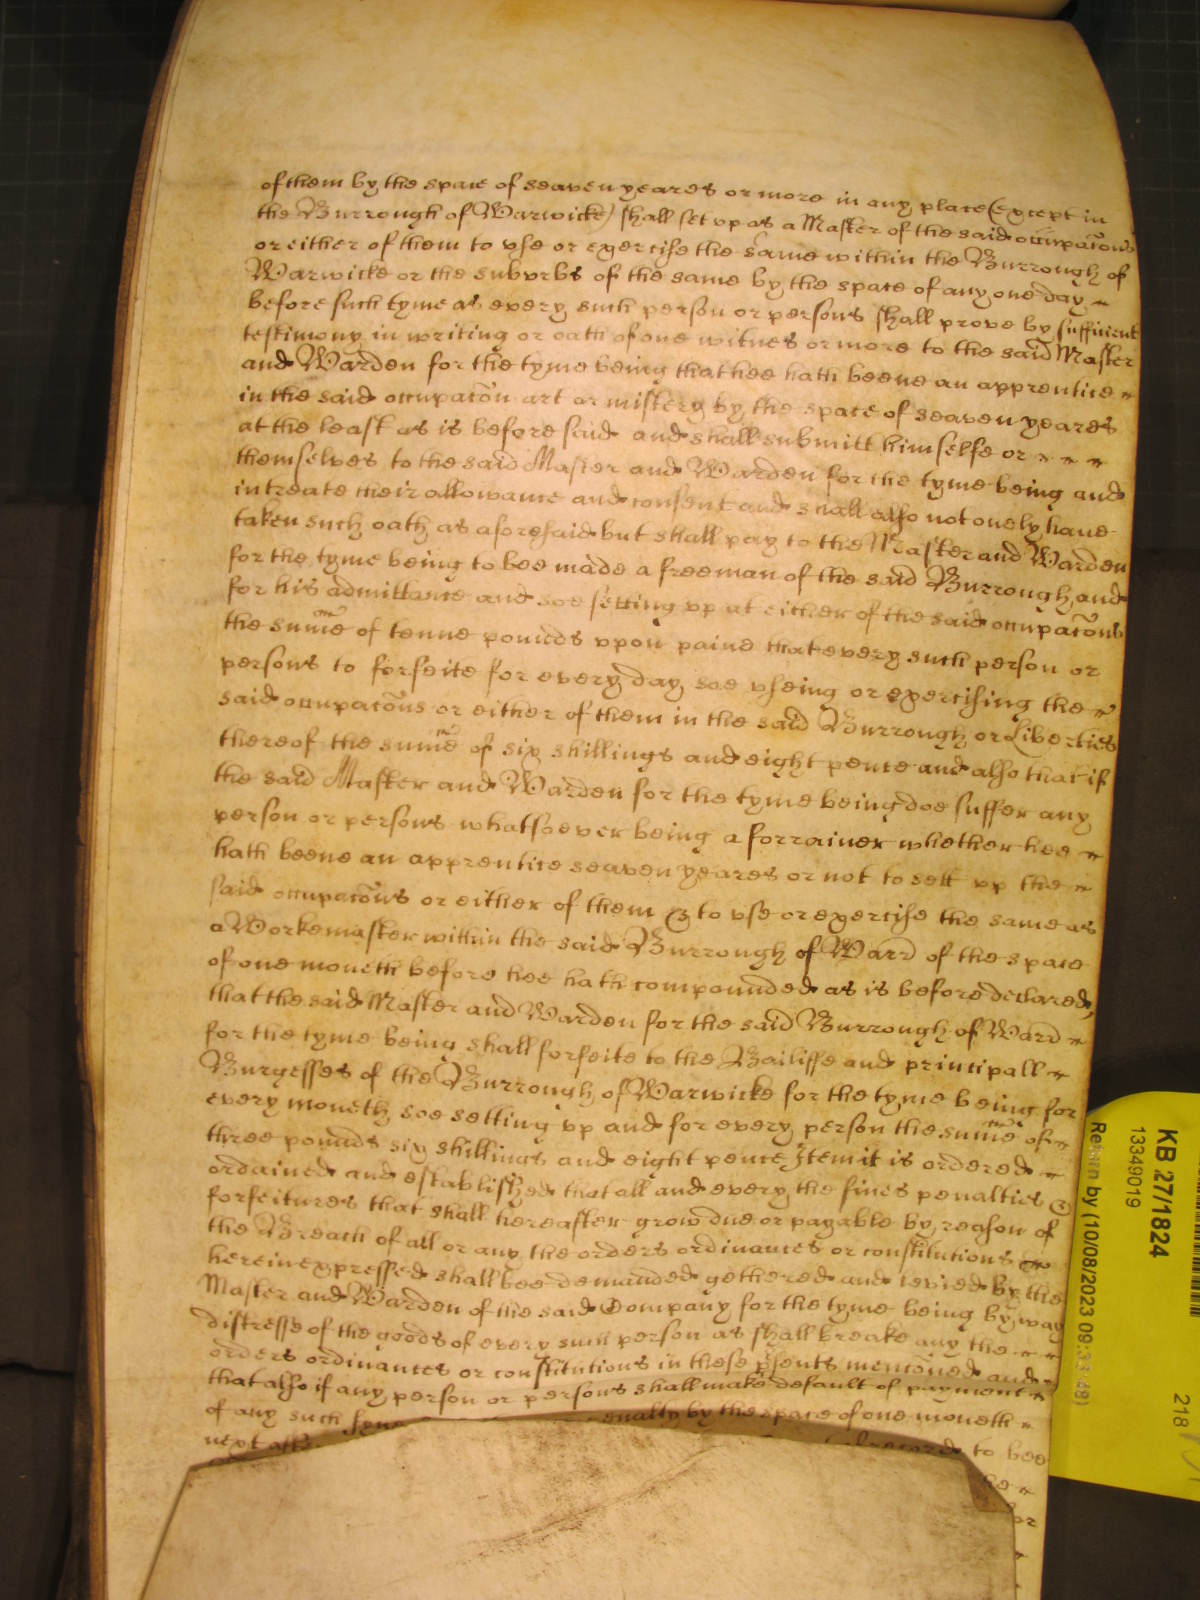 of them by the space of seaven yeares or more in any place (except in
the Burrough of Warwicke) shall set vp as a Master of the said occupacõns
or either of them to vse or exercise the same within the Burrough of
Warwicke or the suburbs of the same by the space of any one day
before such tyme as every such person or persons shall prove by sufficient
testimony in writing or oath of one witnes or more to the said Master
and Warden for the tyme being that hee hath beene an apprentice
in the said occupacõn art or mistery by the space of seaven yeares
at the least as is before said and shall submitt himselfe or
themselves to the said Master and Warden for the tyme being and
intreate their allowance and consent and shall also not onely have
taken such oath as aforesaid but shall pay to the Master and Warden
for the tyme being to bee made a freeman of the said Burrough, and
for his admittance and soe setting vp at either of the said occupacõns
the sum̃e of tenne pounds vpon paine that every such person or
persons to forfeite for every day soe vseing or exercising the
said occupacõns or either of them in the said Burrough or Liberties
thereof the sum̃e of six shillings and eight pence and also that if
the said Master and Warden for the tyme being doe suffer any
person or persons whatsoever being a forrainer whether hee
hath beene an apprentice seaven yeares or not to sett vp the
said occupacõns or either of them & to vse or exercise the same as
a Workemaster within the said Burrough of Warr̃ of the space
of one moneth before hee hath compounded as is before declared,
that the said Master and Warden for the said Burrough of Warr̃
for the tyme being shall forfeite to the Bailiffe and principall
Burgesses of the Burrough of Warwicke for the tyme being for
every moneth soe setting vp and for every person the sum̃e of
three pounds six shillings and eight pence Item it is ordered
ordained and established that all and every the fines penalties &
forfeitures that shall hereafter grow due or payable by reason of
the Breach of all or any the orders ordinances or constitutions
herein expressed shall bee demanded gethered and levied by the
Master and Warden of the said Company for the tyme being by way
distresse of the goods of every such person as shall breake any the
orders ordinances or constitutions in these p̃sents menc̃oned and
that also if any person or persons shall make default of payment
of any such fyne penalty by the space of one moneth
next after record to bee
he
for
KB 27/1824
13349019
Return by (10/08/2023 09:33:48)
218